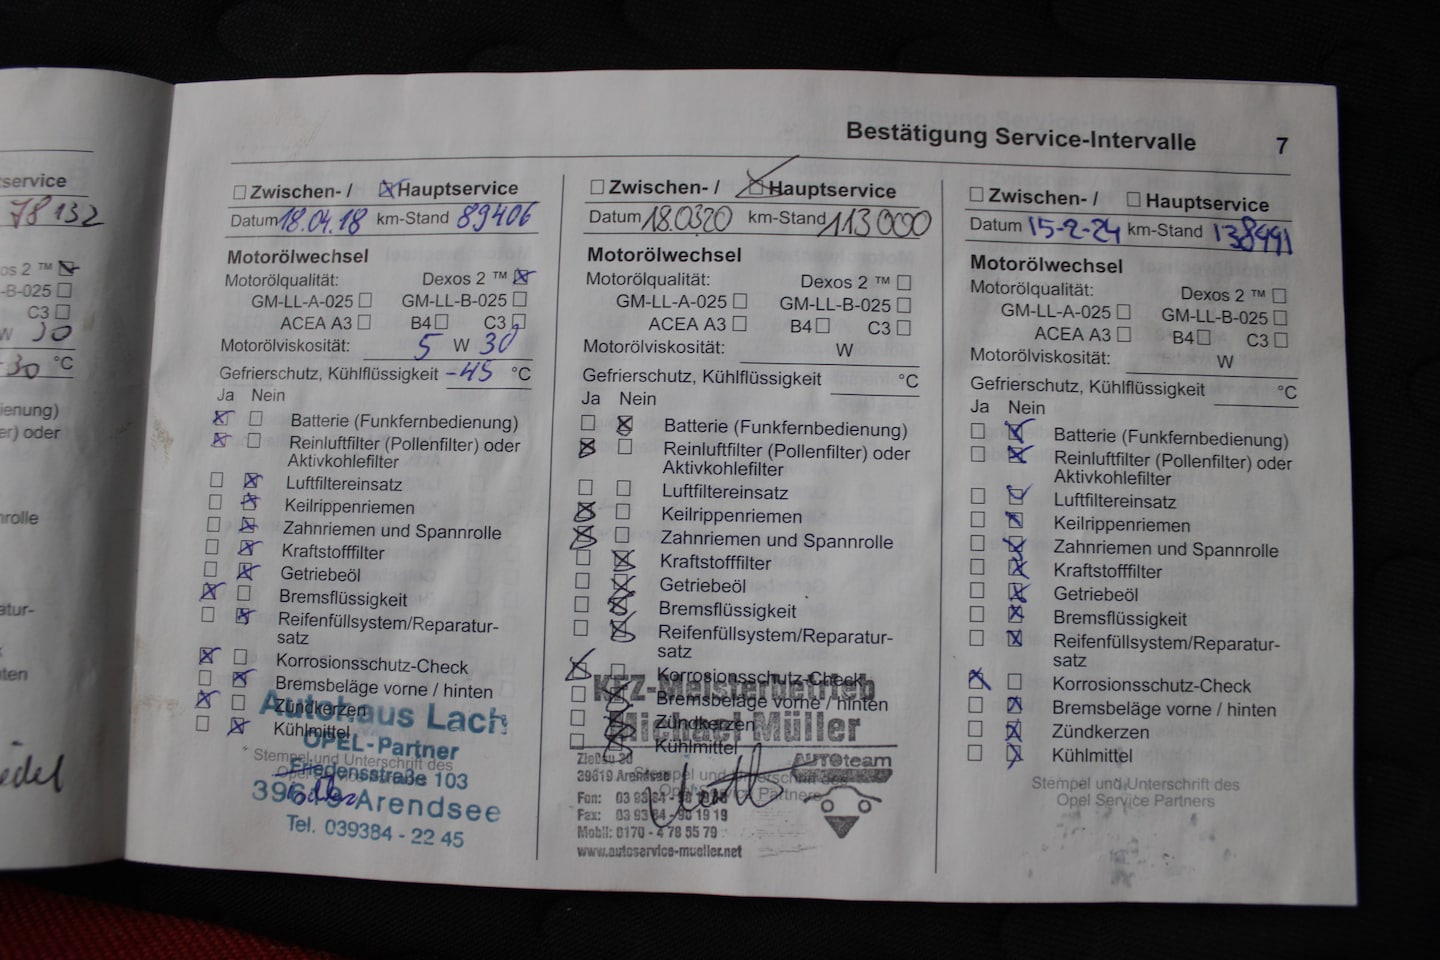 Bestätigung Service-Intervalle 7
service
78132
os 2 ™
-B-025
C3
W 30
-30 °C
ienung)
er) oder
nrolle
atur-
ten
edel
Zwischen- / Hauptservice
Datum 18.04.18 km-Stand 89406
Motorölwechsel
Motorölqualität: Dexos 2 ™
GM-LL-A-025 GM-LL-B-025
ACEA A3 B4 C3
Motorölviskosität: 5 W 30
Gefrierschutz, Kühlflüssigkeit -45 °C
Ja Nein
Batterie (Funkfernbedienung)
Reinluftfilter (Pollenfilter) oder
Aktivkohlefilter
Luftfiltereinsatz
Keilrippenriemen
Zahnriemen und Spannrolle
Kraftstofffilter
Getriebeöl
Bremsflüssigkeit
Reifenfüllsystem/Reparatur-
satz
Korrosionsschutz-Check
Bremsbeläge vorne / hinten
Zündkerzen
Kühlmittel
Stempel und Unterschrift des
Autohaus Lach
OPEL-Partner
Friedensstraße 103
39619 Arendsee
Tel. 039384 - 22 45
Zwischen- / Hauptservice
Datum 18.0320 km-Stand 113000
Motorölwechsel
Motorölqualität: Dexos 2 ™
GM-LL-A-025 GM-LL-B-025
ACEA A3 B4 C3
Motorölviskosität: W
Gefrierschutz, Kühlflüssigkeit °C
Ja Nein
Batterie (Funkfernbedienung)
Reinluftfilter (Pollenfilter) oder
Aktivkohlefilter
Luftfiltereinsatz
Keilrippenriemen
Zahnriemen und Spannrolle
Kraftstofffilter
Getriebeöl
Bremsflüssigkeit
Reifenfüllsystem/Reparatur-
satz
Korrosionsschutz-Check
Bremsbeläge vorne / hinten
Zündkerzen
Kühlmittel
Stempel und Unterschrift des
Opel Service Partners
KFZ-Meisterbetrieb
Michael Müller
39619 Arendsee
AUTOteam
Fon: 03 93 84 - 98 19
Fax: 03 93 84 - 98 19 19
Mobil: 0170 - 4 78 55 79
www.autoservice-mueller.net
Zwischen- / Hauptservice
Datum 15-2-24 km-Stand 138991
Motorölwechsel
Motorölqualität: Dexos 2 ™
GM-LL-A-025 GM-LL-B-025
ACEA A3 B4 C3
Motorölviskosität: W
Gefrierschutz, Kühlflüssigkeit °C
Ja Nein
Batterie (Funkfernbedienung)
Reinluftfilter (Pollenfilter) oder
Aktivkohlefilter
Luftfiltereinsatz
Keilrippenriemen
Zahnriemen und Spannrolle
Kraftstofffilter
Getriebeöl
Bremsflüssigkeit
Reifenfüllsystem/Reparatur-
satz
Korrosionsschutz-Check
Bremsbeläge vorne / hinten
Zündkerzen
Kühlmittel
Stempel und Unterschrift des
Opel Service Partners